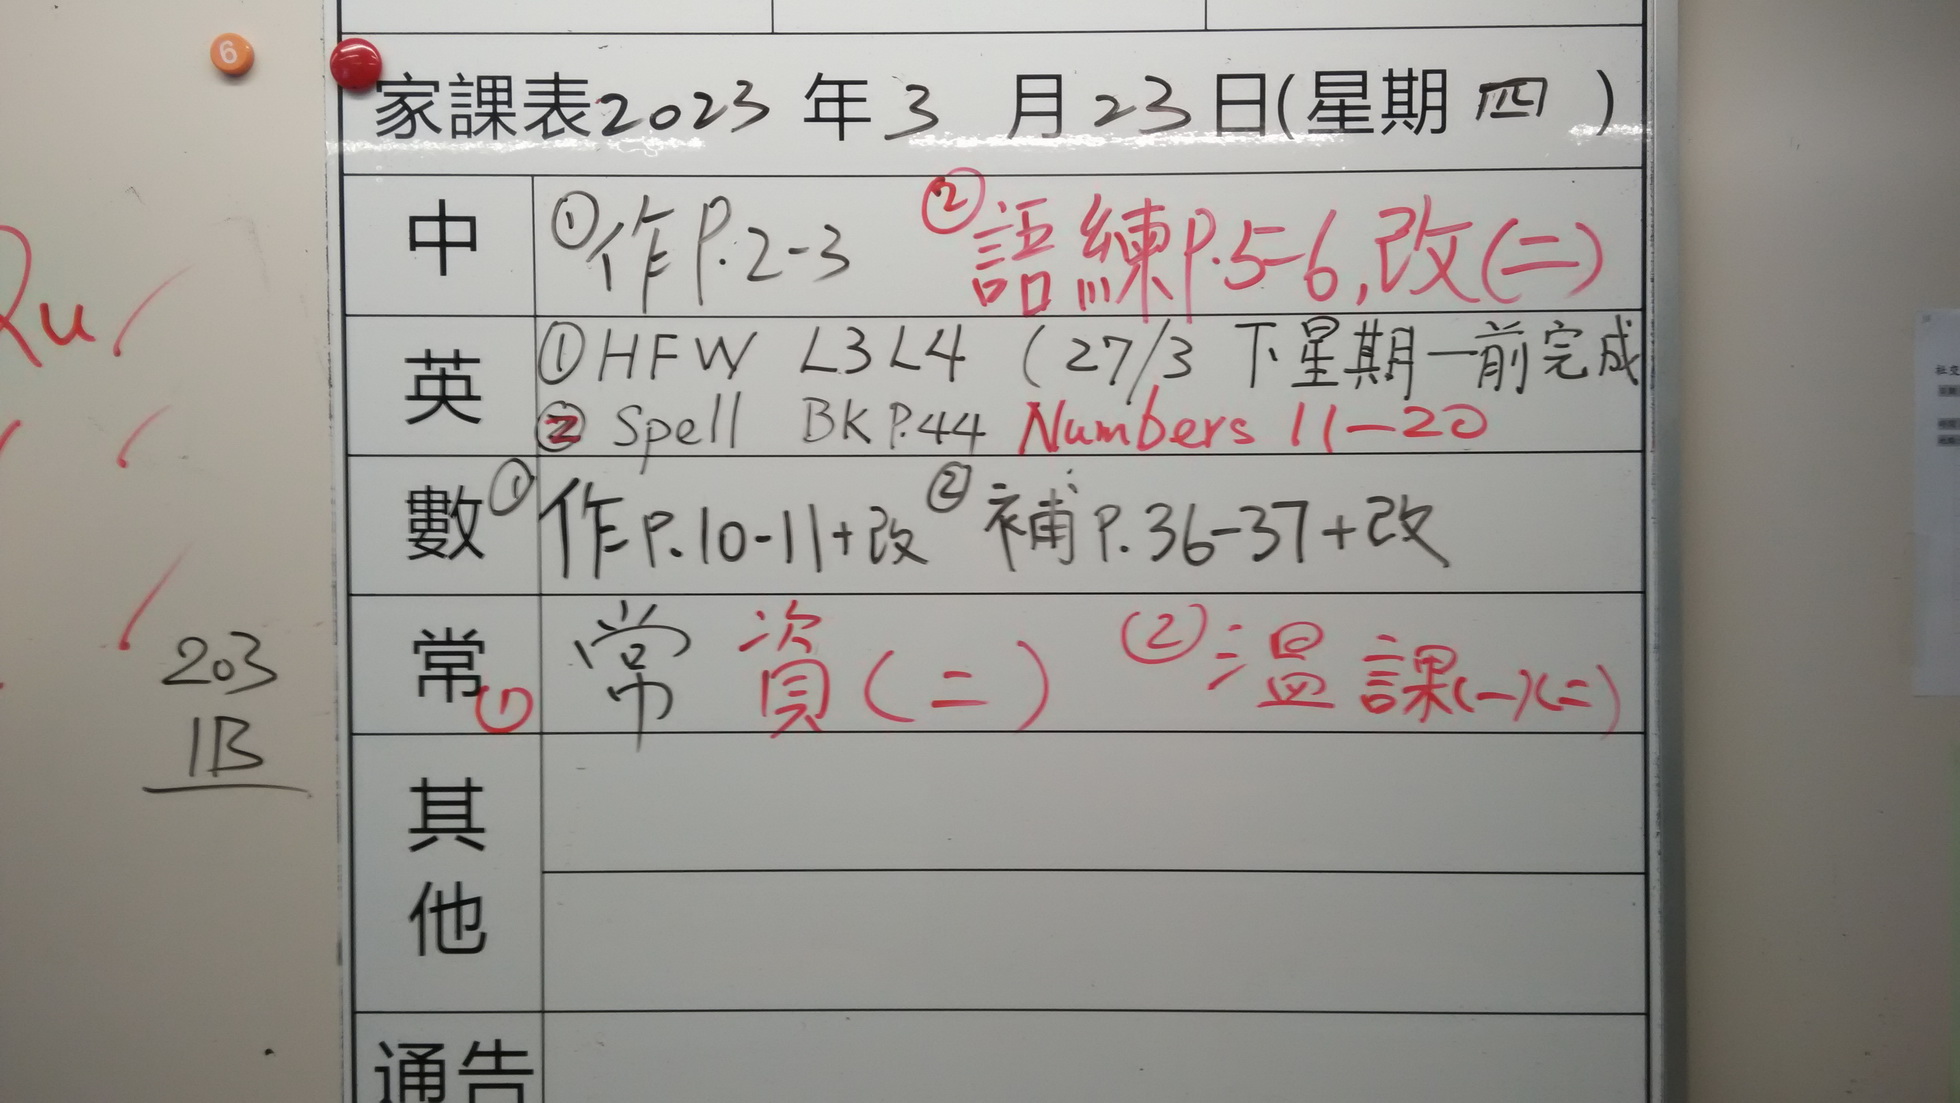 6
家課表2023年3月23日(星期四)
中 ①作P.2-3 ②語練P.5-6,改(二)
英 ①HFW L3L4 (27/3 下星期一前完成
② Spell BK P.44 Numbers 11-20
數 ①作P.10-11+改 ②補P.36-37+改
常 ①常資(二) ②溫課(一)(二)
其他
通告
Qu
203
1B